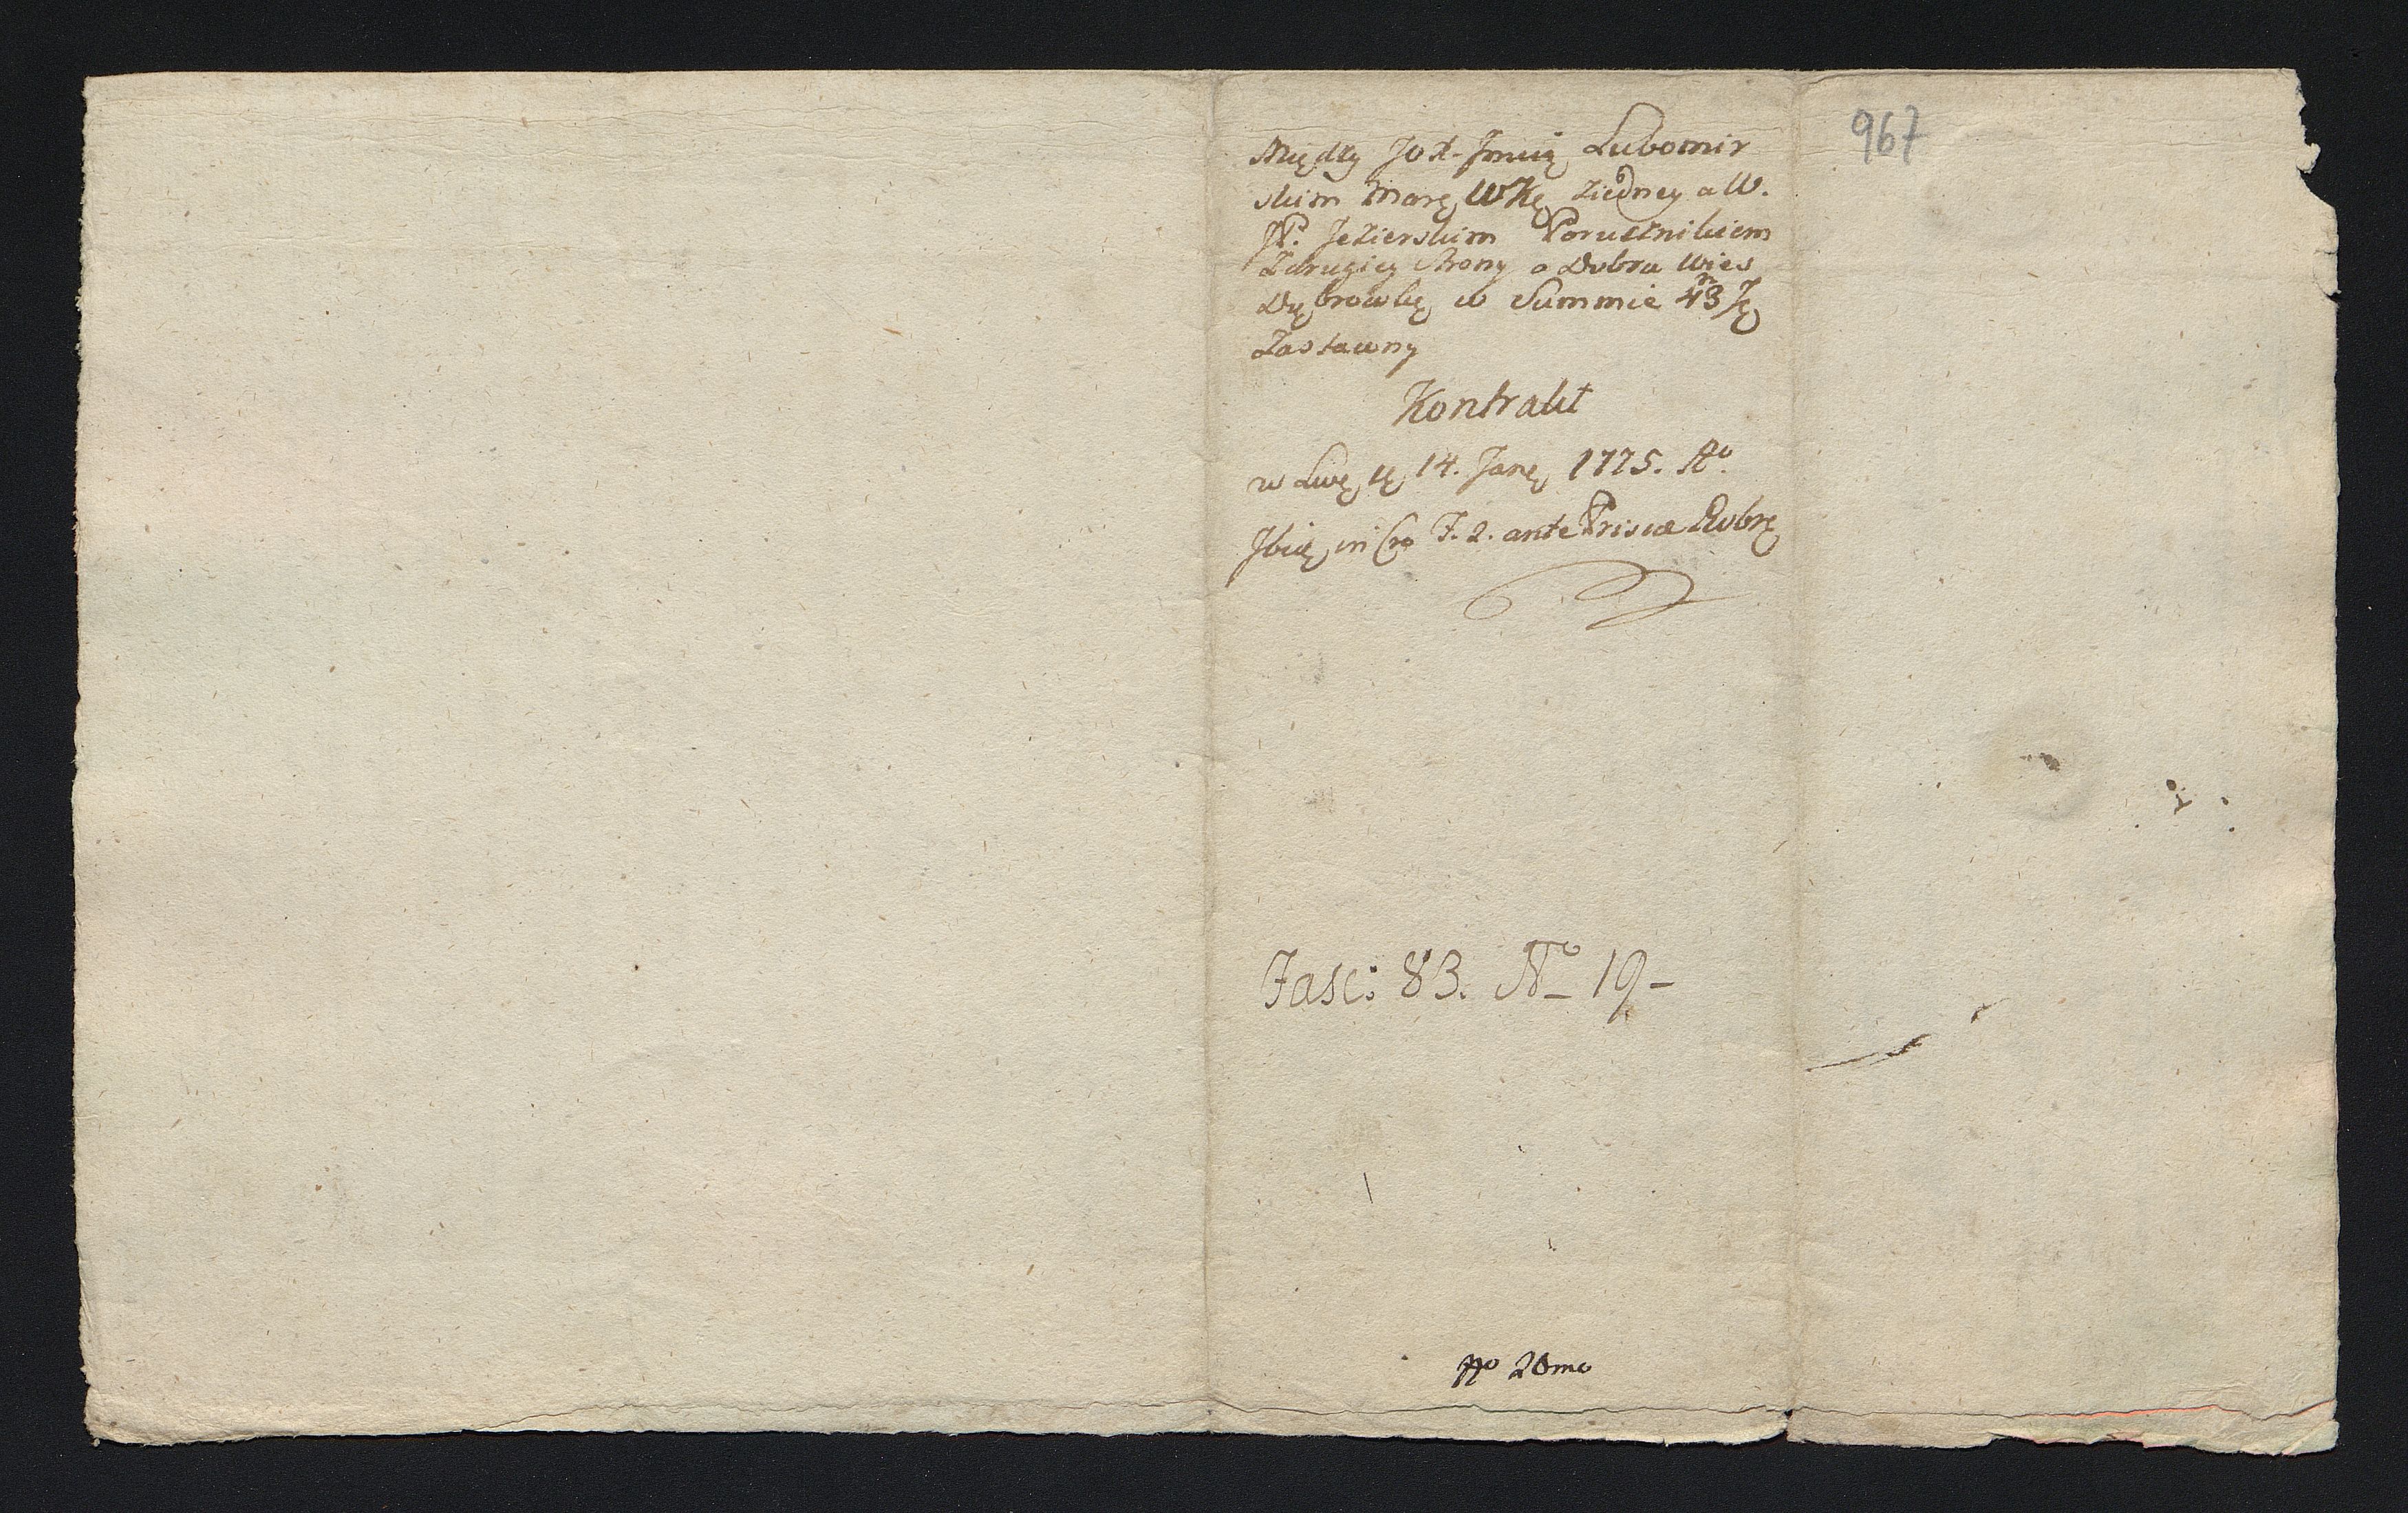 Między JOX. Jmcią Lubomir
skim Marę WKę ziedney a W.
JP. Jezierskim Porucznikiem
Zdrugiey Strony o Dobra Wieś
Dąbrowkę w Summie 43
Zastawny
Kontrakt
w 14. Janę 1775. Ao.
in F. 2. ante Priscæ Robrę
Fasc: 83. No 19-
No 20mo
967